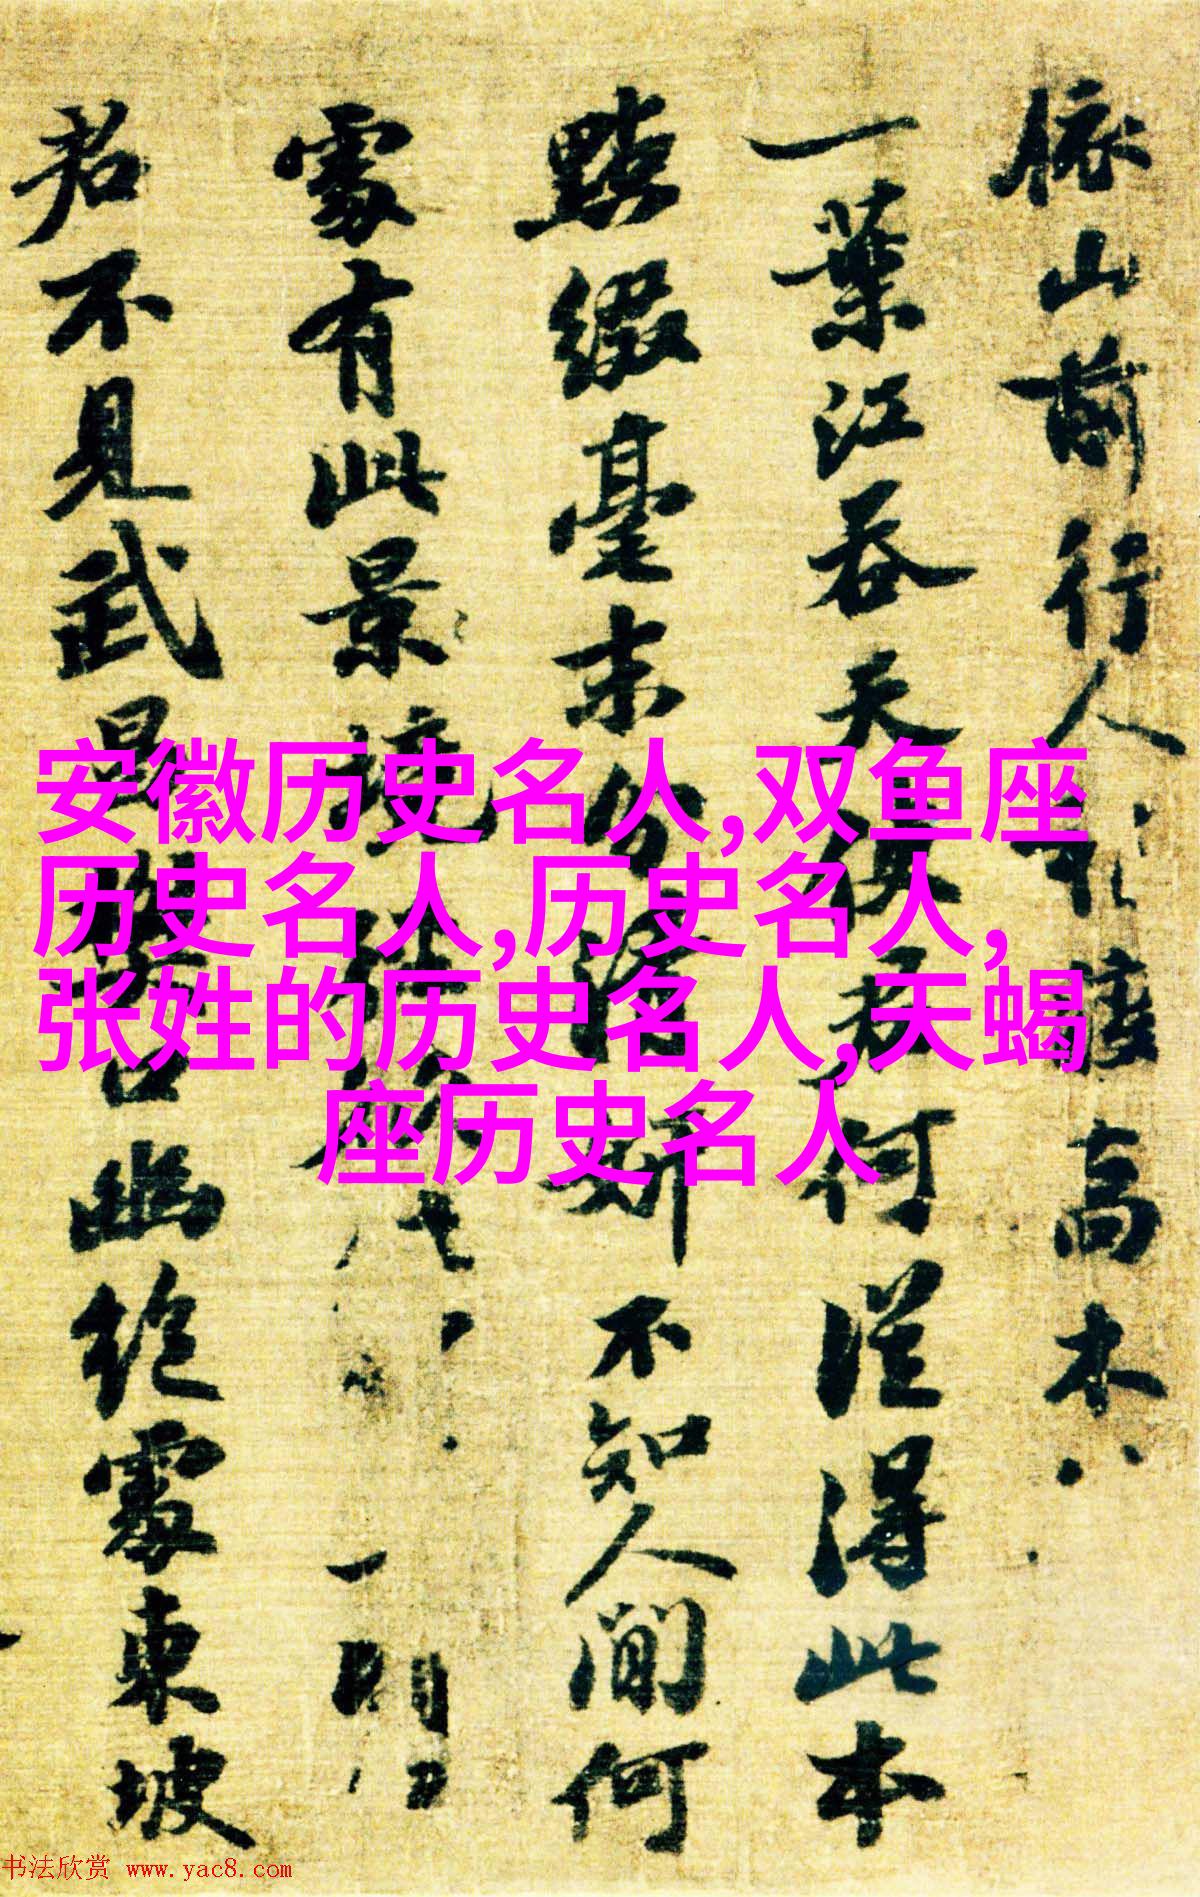 依山前行人稍度高木
一葉江吞天使君何從得此本
點綴毫末分清妍不知人間何
處有此景境徑
君不見武昌樊口幽絕處東坡
安徽历史名人,双鱼座
历史名人,历史名人,
张姓的历史名人,天蝎
座历史名人
书法欣赏 www.yac8.com